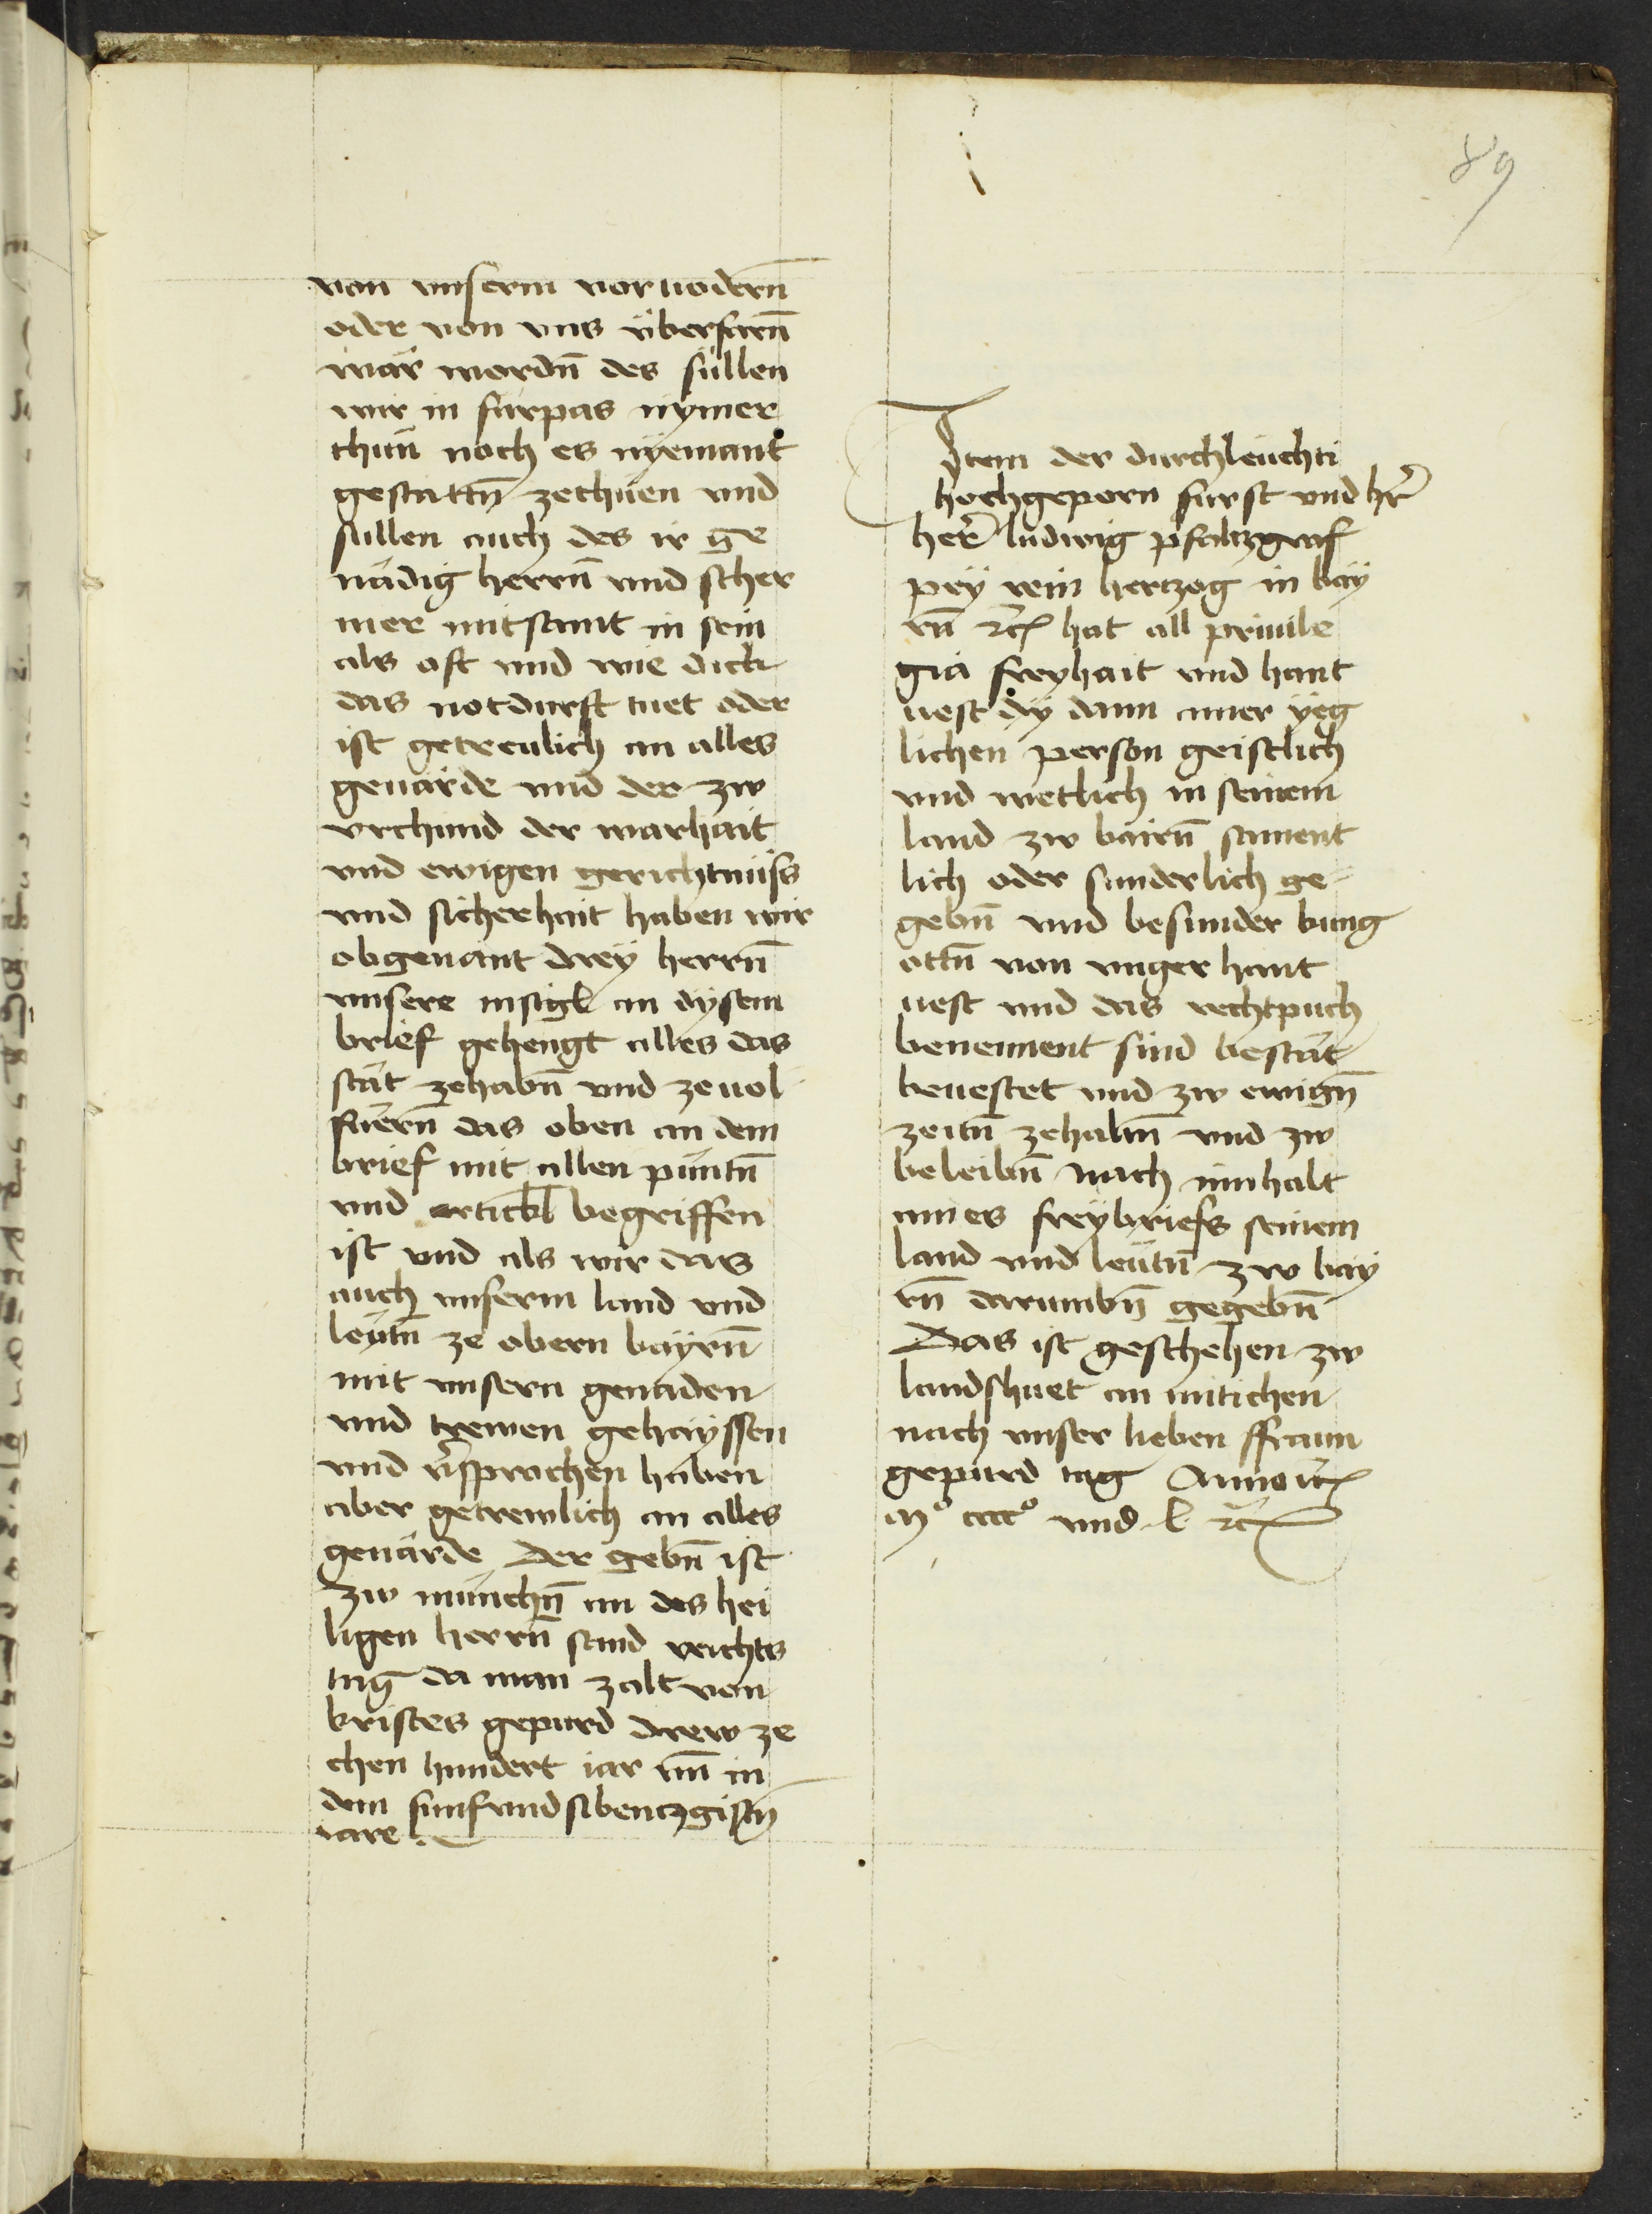 89
von unserm voruodern̄
oder von vns v̈berfarn̄
wär wordn̄ des süllen
wir in fürpas nÿmer
thün noch es nÿemant
gestattn̄ zethuen vnd
sullen auch des ir ge
nädig herrn̄ vnd scher
mer mitsamt in sein
als oft vnd wie dick
das notdurft tuet oder
ist getreulich an alles
geuärde vnd der zw
vrchund der warhait
vnd ewigen gerichtnüss
vnd sicherhait haben wir
obgenant drey herrn̄
unsere insigl an dÿsem
brief gehengt alles das
stät zehabn̄ vnd zeuol
füern̄ das oben an dem
brief mit allen püntn̄
vnd artickl begriffen
ist vnd als wir das
auch unserm land vnd
leutn̄ ze obern bayrn̄
mit unsern genaden
vnd trewen gehayssen
vnd v̄sprochen haben
aber getrewlich an alles
geuärde Der gebn̄ ist
zw münchn̄ an des hei
ligen herrn̄ sand veichts
tag da man zalt von
kristes gepurd drew ze
chen hundert iar vn̄ in
dem funfvndsibentzgistn̄
iare
Item der durchleuchti
hochgeporn fürst vnd hr̄
her̄ ludwig pfaltzgraf
pey rein hertzog in bay
rn̄ ꝛc̄ hat all priuile
gia freyhait vnd hant
uest dÿ dann ainer ÿeg
lichen person geistlich
vnd wetlich in seinem
land zw bairn̄ sament
lich oder sunderlich ge
gebn̄ vnd besunder kung
ottn̄ von vnger hant
uest vnd das rechtpuch
benennent sind bestät
beuestet vnd zw ewign̄
zeitn̄ zehaltn̄ vnd zw
beleibn̄ nach innhalt
aines freybriefs seinem
land vnd leutn̄ zw bay
rn̄ darumbn̄ gegebn̄
Das ist geschehen zw
landshuet an mitichen
nach unser lieben ffraun
gepurd tag Anno ꝛc̄
mº ccccº vnd l ꝛc̄